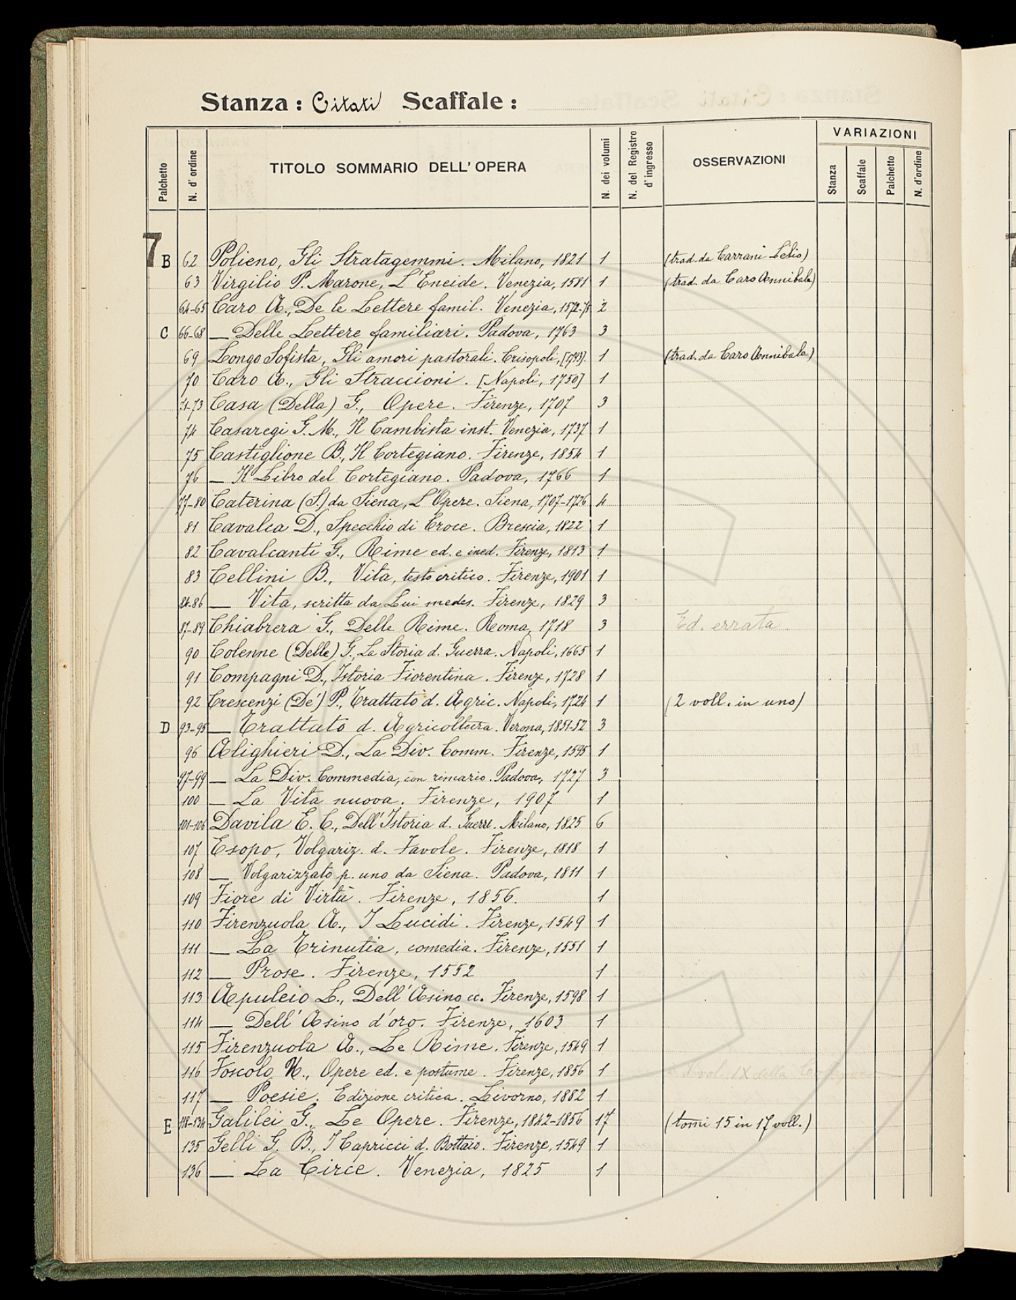 Stanza: Citati Scaffale:
Palchetto N. d'ordine TITOLO SOMMARIO DELL'OPERA N. dei volumi N. del Registro d'ingresso OSSERVAZIONI VARIAZIONI Stanza Scaffale Palchetto N. d'ordine
7 B 62 Polieno, Gli Stratagemmi. Milano, 1821 1 (trad. da Carrani Lelio)
63 Virgilio P. Marone, L'Eneide. Venezia, 1581 1 (trad. da Caro Annibale)
64-65 Caro A., De le Lettere famil. Venezia, 1572-75 2
C 66-68 — Delle Lettere familiari. Padova, 1763 3
69 Longo Sofista, Gli amori pastorali. Crisopoli, [1793]. 1 (trad. da Caro Annibale)
70 Caro A., Gli Straccioni. [Napoli, 1750] 1
71-73 Casa (Della) G., Opere. Firenze, 1707 3
74 Casaregi G. M., Il Cambista inst. Venezia, 1737 1
75 Castiglione B., Il Cortegiano. Firenze, 1854 1
76 — Il Libro del Cortegiano. Padova, 1766 1
77-80 Caterina (S.) da Siena, L'Opere. Siena, 1707-1726 4
81 Cavalca D., Specchio di Croce. Brescia, 1822 1
82 Cavalcanti G., Rime ed. e ined. Firenze, 1813 1
83 Cellini B., Vita, testo critico. Firenze, 1901 1
84-86 — Vita, scritta da Lui medes. Firenze, 1829 3
87-89 Chiabrera G., Delle Rime. Roma, 1718 3 Ed. errata
90 Colenne (Delle) G., La Storia d. Guerra. Napoli, 1665 1
91 Compagni D., Istoria Fiorentina. Firenze, 1728 1
92 Crescenzi (De') P., Trattato d. Agric. Napoli, 1724 1 (2 voll. in uno)
D 93-95 — Trattato d. Agricoltura. Verona, 1851-52 3
96 Alighieri D., La Div. Comm. Firenze, 1595 1
97-99 — La Div. Commedia, con rimario. Padova, 1727 3
100 — La Vita nuova. Firenze, 1907 1
101-106 Davila E. C., Dell'Istoria d. Guerre. Milano, 1825 6
107 Esopo, Volgariz. d. Favole. Firenze, 1818 1
108 — Volgarizzato p. uno da Siena. Padova, 1811 1
109 Fiore di Virtù. Firenze, 1856. 1
110 Firenzuola A., I Lucidi. Firenze, 1549 1
111 — La Trinutia, comedia. Firenze, 1551 1
112 — Prose. Firenze, 1552 1
113 Apuleio L., Dell'Asino Firenze, 1598 1
114 — Dell'Asino d'oro. Firenze, 1603 1
115 Firenzuola A., Le Rime. Firenze, 1549 1
116 Foscolo U., Opere ed. e postume. Firenze, 1856 1 vol. IX della
117 — Poesie. Edizione critica. Livorno, 1882 1
E 118-134 Galilei G., Le Opere. Firenze, 1842-1856 17 (tomi 15 in 17 voll.)
135 Gelli G. B., I Capricci d. Bottaio. Firenze, 1549 1
136 — La Circe. Venezia, 1825 1